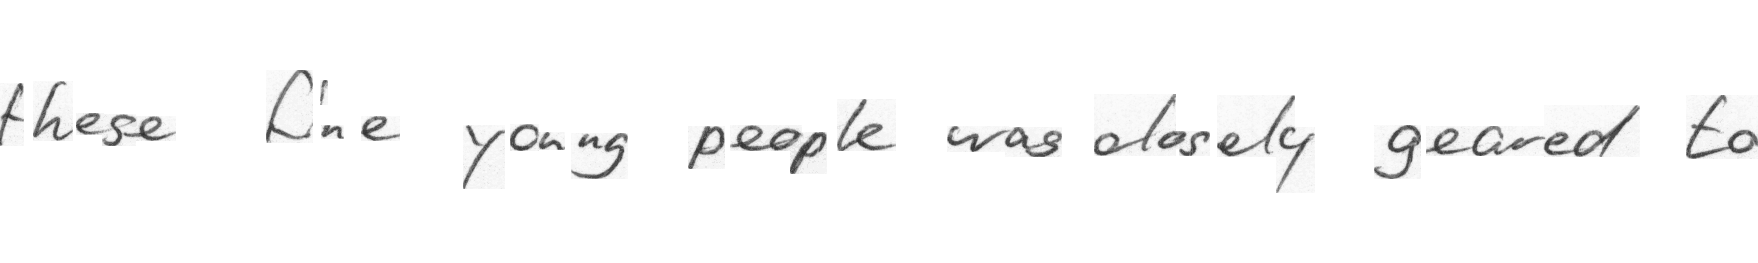 these fine young people was closely geared to